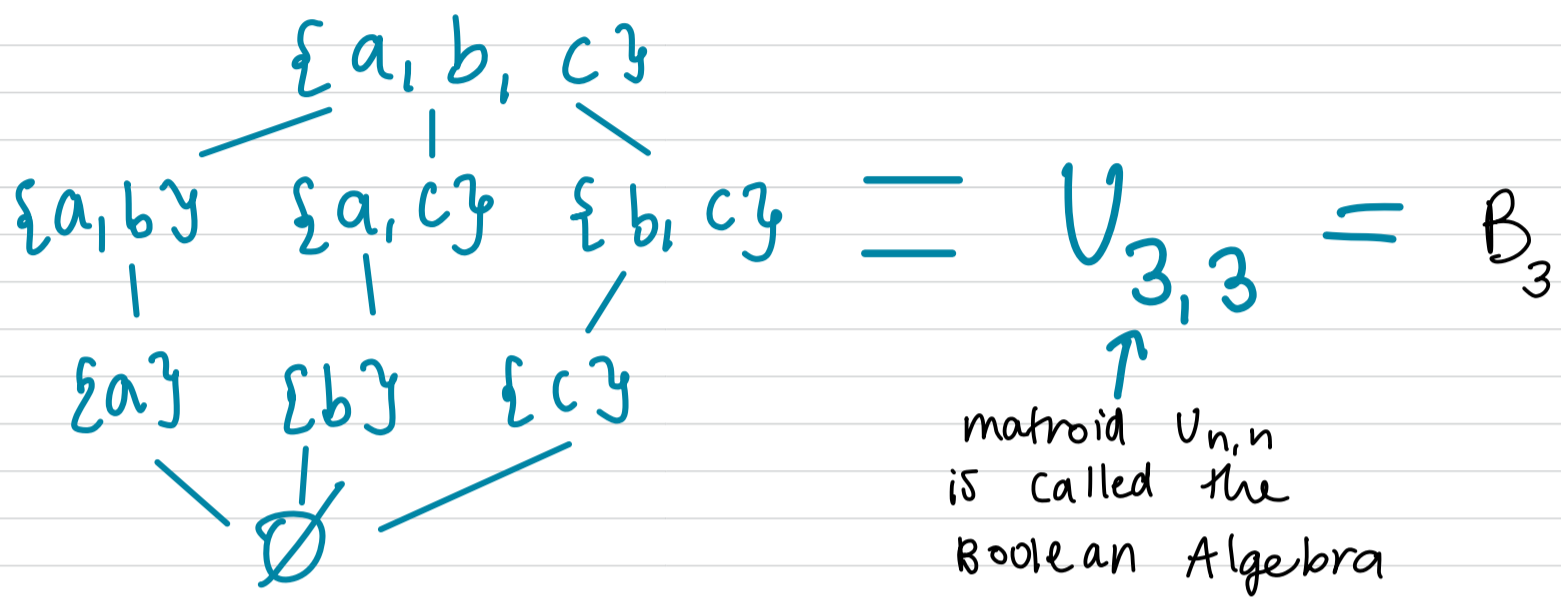 {a, b, c}
{a,b} {a,c} {b,c} = U3,3 = B3
{a} {b} {c}
∅
matroid Un,n
is called the
Boolean Algebra